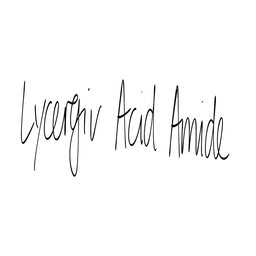 Lycergiv Acid Amide